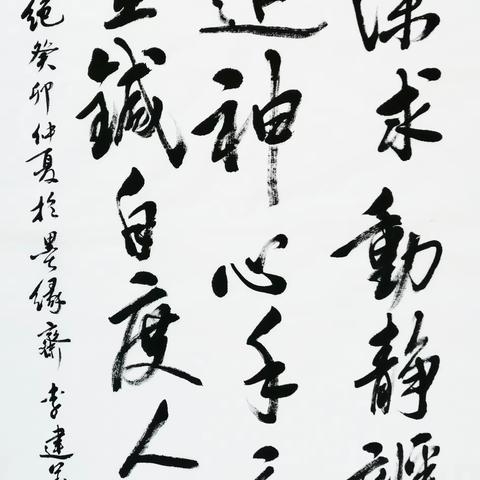 求動靜
神心手
鍼自度人
絕癸卯仲夏於墨緣齋 李建